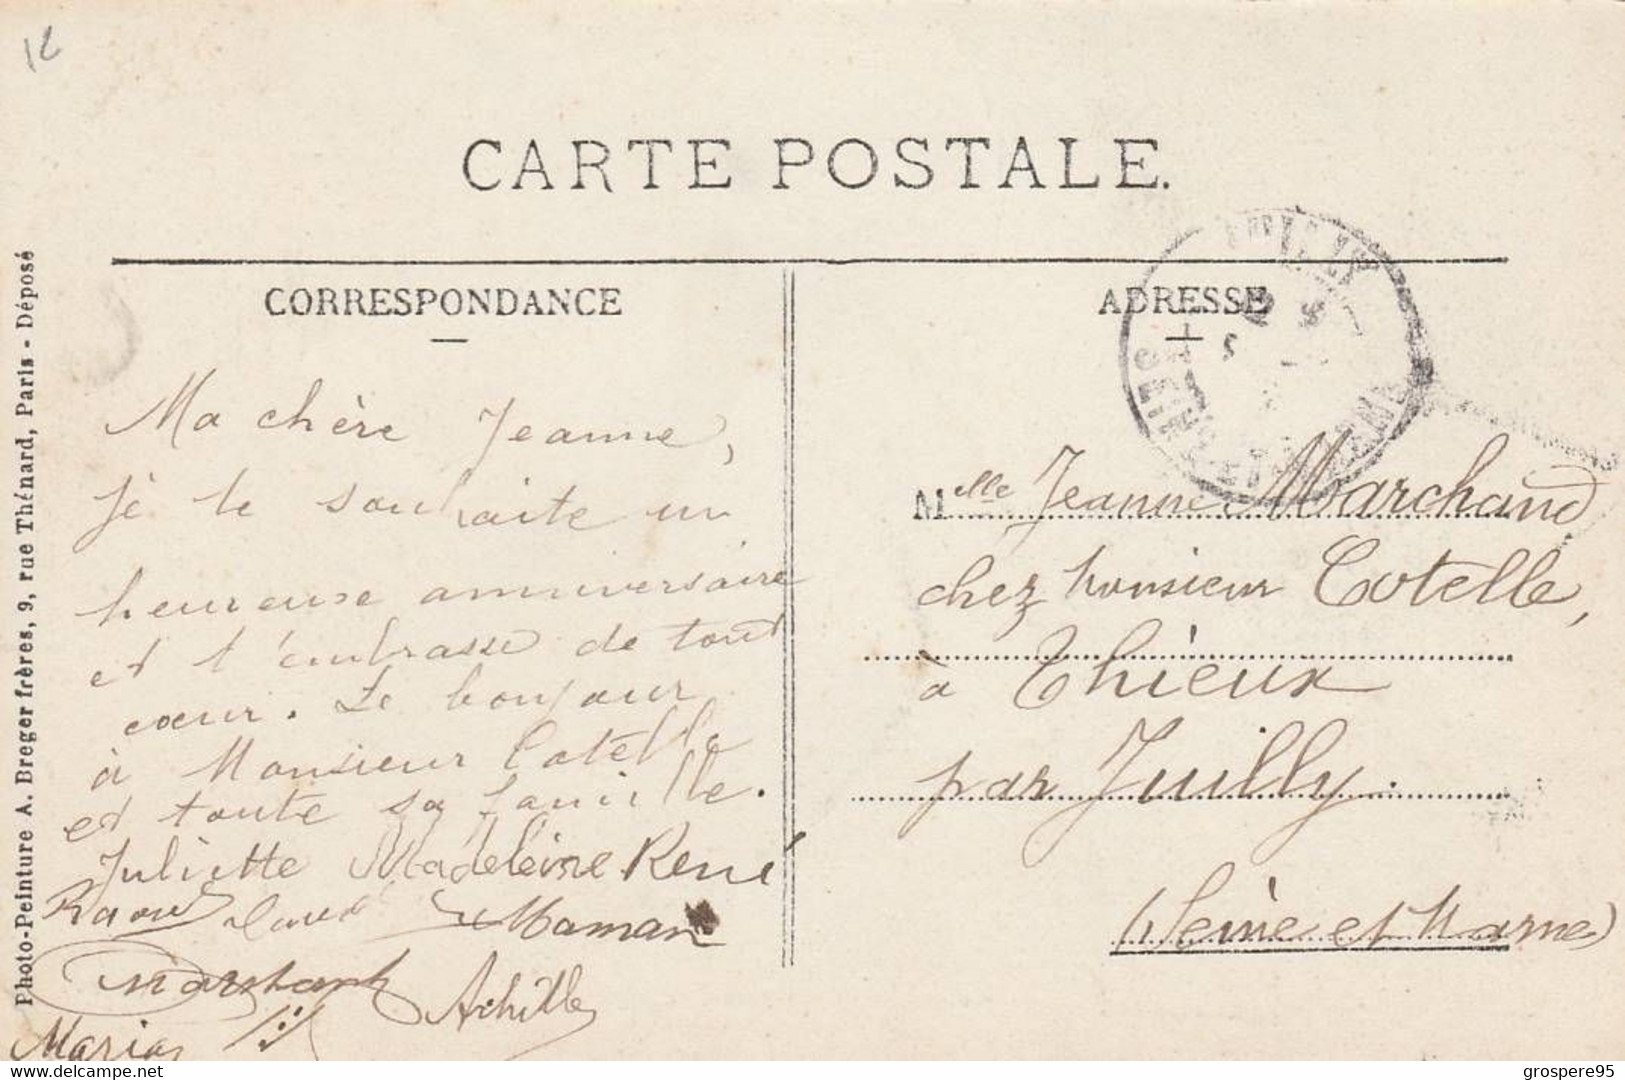 12
CARTE POSTALE.
CORRESPONDANCE
ADRESSE
Photo-Peinture A. Breger frères, 9, rue Thénard, Paris - Déposé
Ma chère Jeanne,
Je te souhaite un
heureuse anniversaire
et t'embrasse de tout
cœur. Le bonjour
à Monsieur Cotelle
et toute sa famille.
Juliette Madeleine René
Raoul Maman
Marchand Achille
Maria
Melle Jeanne Marchand
chez Monsieur Cotelle,
à Thieux
par Juilly.
(Seine et Marne)
SEINE ET MARNE
delcampe.net
grospere95